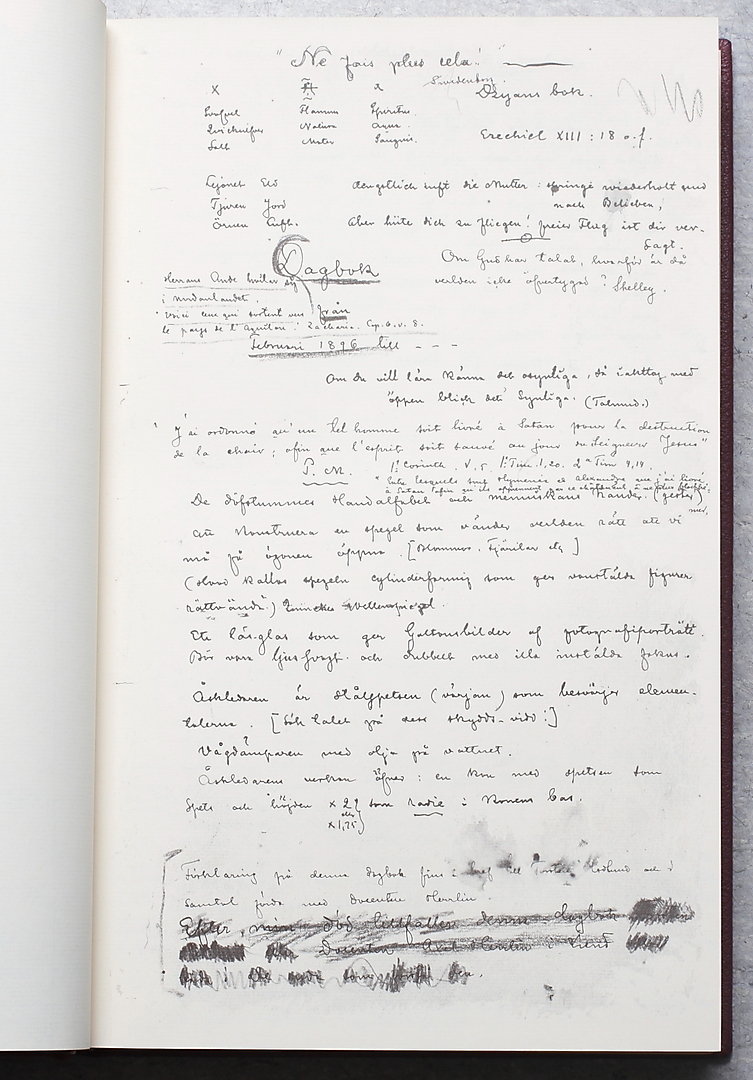 "Ne fais plus cela!"
Swedenborg.
x x Dzyans bok.
Svafvel Hamnus Spiritus
Qvicksilfver Natura Aqua
Salt Mater Sanguis.
Ezechiel XIII : 18 o.f.
Lejonet Eld
Tjuren Jord
Örnen Luft.
Aengstlich ruft die Mutter: springe wiederholt und
nach Belieben,
Aber hüte dich zu fliegen! freier Flug ist dir ver-
sagt.
Dagbok
Om Gud har talat, hvarför är då
verlden icke öfvertygad? Shelley.
Herrans Ande hvilar
i nordanlandet.
"Voici ceux qui sortent vers
le pays de l'Aquilon." Zacharia. Cap. 6. v. 8.
från
Februari 1896 till - - -
Om du vill lära känna det osynliga, så iakttag med
öppen blick det Synliga. (Talmud.)
"J'ai ordonné qu'un tel homme soit livré à Satan pour la destruction
de la chair; afin que l'esprit soit sauvé au jour du Seigneur Jesus"
P. M. 1a Corinth. V, 5. 1a Tim. 1,20. 2a Tim 4,14.
"Entre lesquels sont Hymenée et Alexandre que j'ai livré
à Satan afin qu'ils apprennent
De döfstummes Handalfabet och menniskans händer (gester)
med.
Att konstruera en spegel som vänder verlden rätt att vi
må få ögonen öppna. [Blommor, Fjärilar etc]
(Hvad kallas spegeln cylinderformig som ger vanstälda figurer
rättvända?) Quinckes Wellenspiegel.
Ett läs-glas som ger Galtonsbilder af fotografiporträtt.
Bör vara ljusstarkt och dubbelt med illa instälda fokus.
Åskledaren är stålspetsen (värjan) som besvärjer elemen-
talerna. [Sök talet på dess skydds-vidd!]
Vågdämparen med olja på vattnet.
Åskledarens verkan öfver: en kon med spetsen som
Spets och höjden x 2 som radie i konens bas.
eller
x 1,75
Förklaring på denna dagbok fins i bref till Torsten Hedlund och i
samtal förda med Docenten Herrlin.
Efter min död tillfaller denna dagbok
Docenten Axel Herrlin i Lund
den.